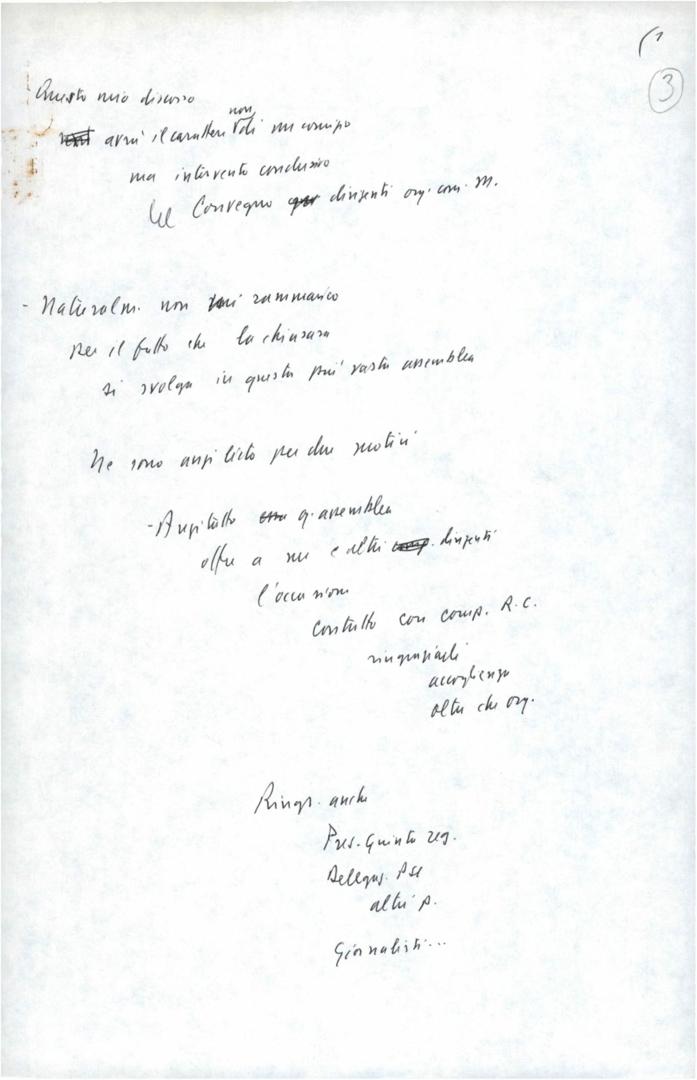 3
Questo mio discorso
avrà il carattere non di un comizio
ma intervento conclusivo
del Convegno dirigenti org. com. M.
- Naturalm. non rammarico
per il fatto che la chiusura
si svolga in questa più vasta assemblea
Ne sono anzi lieto per due motivi
- Anzitutto q. assemblea
offre a me e altri dirigenti
l'occasione
contatto con comp. R.C.
ringraziarli
accoglienza
oltre che org.
Ringr. anche
Pres. Giunta reg.
Delegaz. PSI
altri p.
Giornalisti...